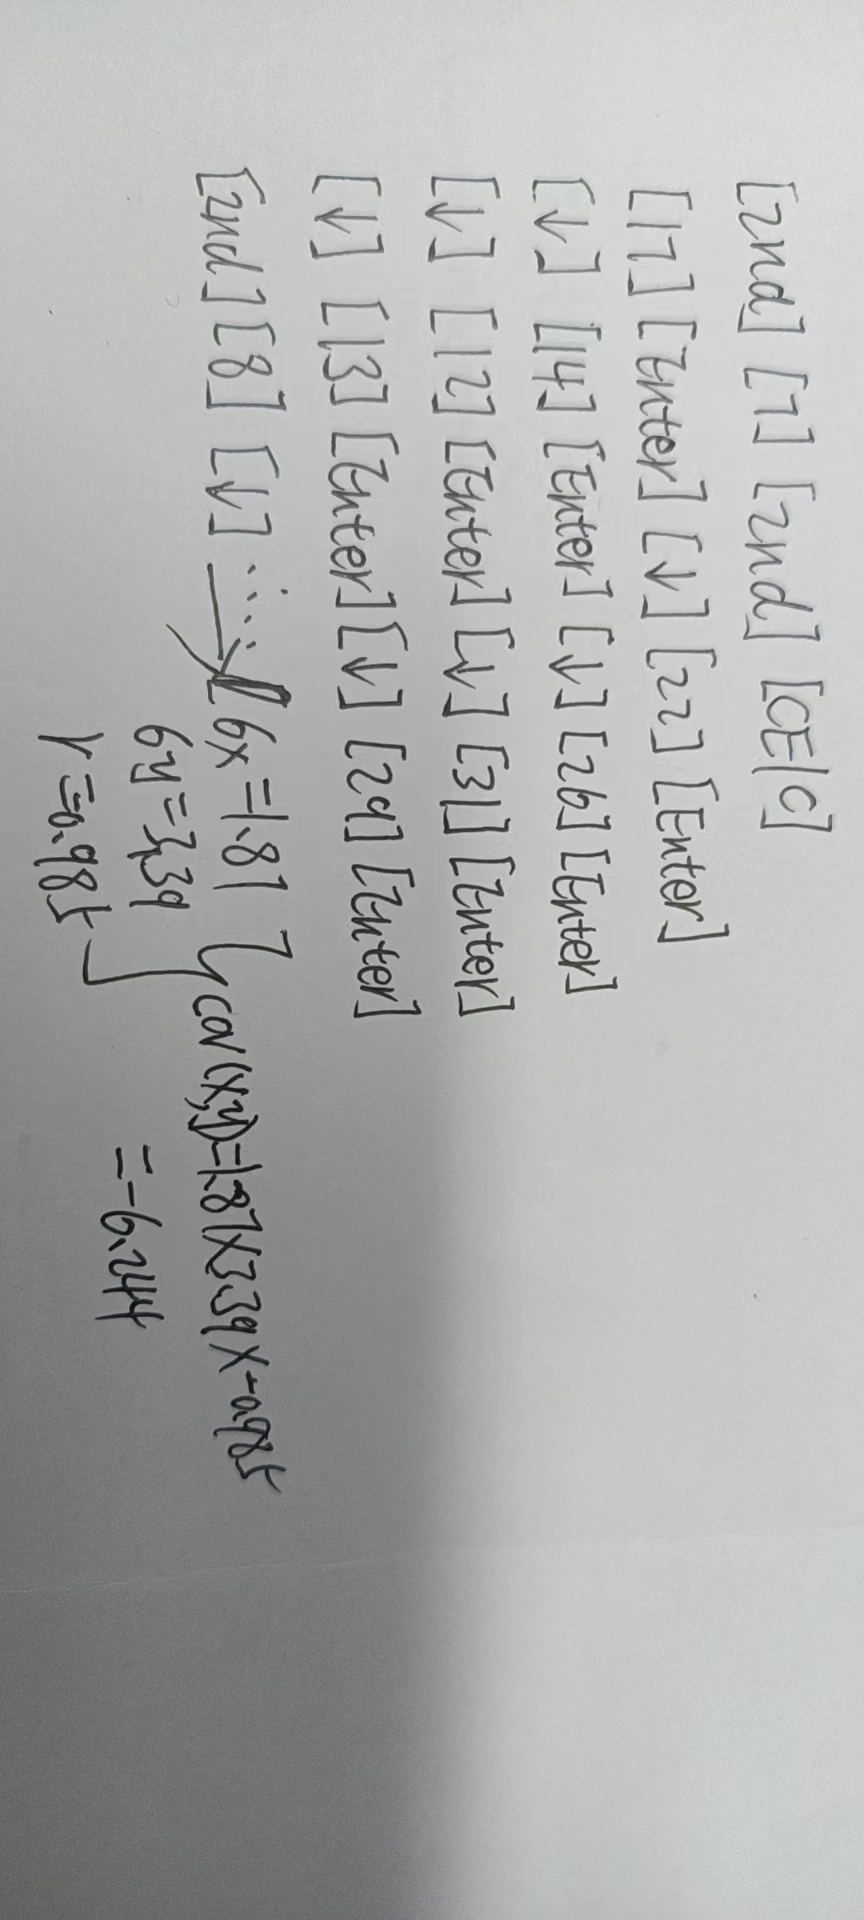 [2nd] [7] [2nd] [CE/C]
[17] [Enter] [↓] [22] [Enter]
[↓] [14] [Enter] [↓] [26] [Enter]
[↓] [12] [Enter] [↓] [31] [Enter]
[↓] [13] [Enter] [↓] [29] [Enter]
[2nd] [8] [↓] ......
σx=1.87
σy=3.39
r=-0.985
cov(x,y)=1.87×3.39×-0.985
=-6.244